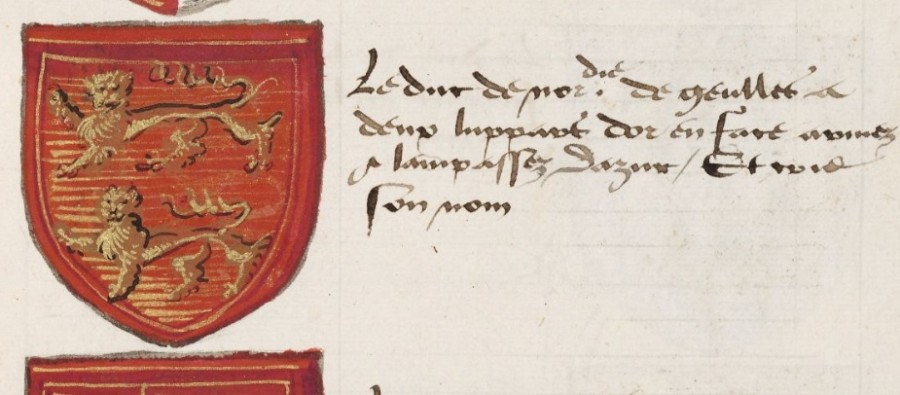 Le duc de nor.die de geulles a
deux luppars dor en face armez
& lampassez dazur / Et crie
son nom